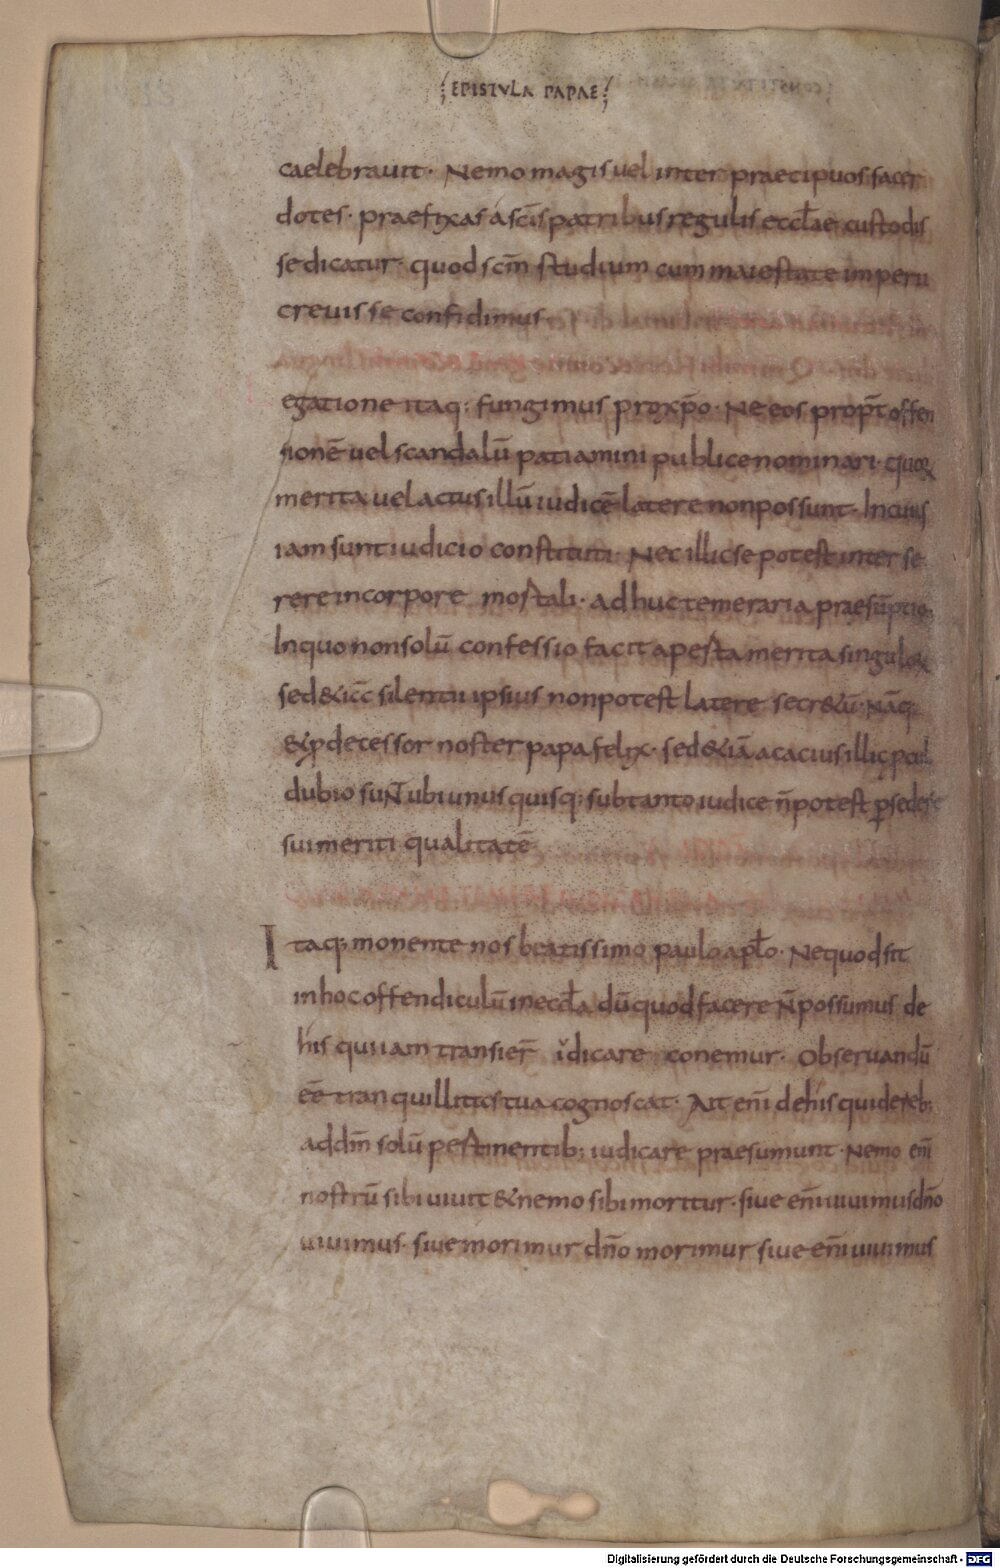 EPISTVLA PAPAE
caelebrauit· Nemo magis uel inter praecipuos sacer
dotes· praefixas a sc̄is patribus regulis eccl̄ae custodis
se dicatur· quod sc̄m studium cum maiestate imperii
creuisse confidimus
egatione itaq; fungimus pro xp̄o· Ne eos propt̄ offen
sionē uel scandalū patiamini publice nominari· quoꝝ
merita uel actus illū iudicē latere non possunt· In cuius
iam sunt iudicio constituti· Nec illic se potest inter se
rere in corpore mostali· adhuc temeraria praesūptio;
In quo non solū confessio facit apesta merita singuloꝝ
sed & icc̄ silentii ipsius non potest latere secr&ū· Nāq;
&p̱decessor noster papa felix· sed &iā acacius illic ꝑcul
dubio suN̄ ubi unus quisq; sub tanto iudice n̄ potest p̱sedere
sui meriti qualitatē
Itaq; monente nos beatissimo paulo apl̄o· Ne quod sit
in hoc offendiculū in eccl̄a dū quod facere n̄ possumus de
his qui iam transier̄ idicare conemur· Obseruandū
eē tranquillitas tua cognoscat· Ait en̄i de his qui de reb;
ad dn̄m solū pestinentib; iudicare praesumunt· Nemo en̄i
nostrū sibi uiuit & nemo sibi moritur· siue en̄i uiuimus dn̄o
uiuimus· siue morimur dn̄o morimur siue en̄i uiuimus
Digitalisierung gefördert durch die Deutsche Forschungsgemeinschaft - DFG